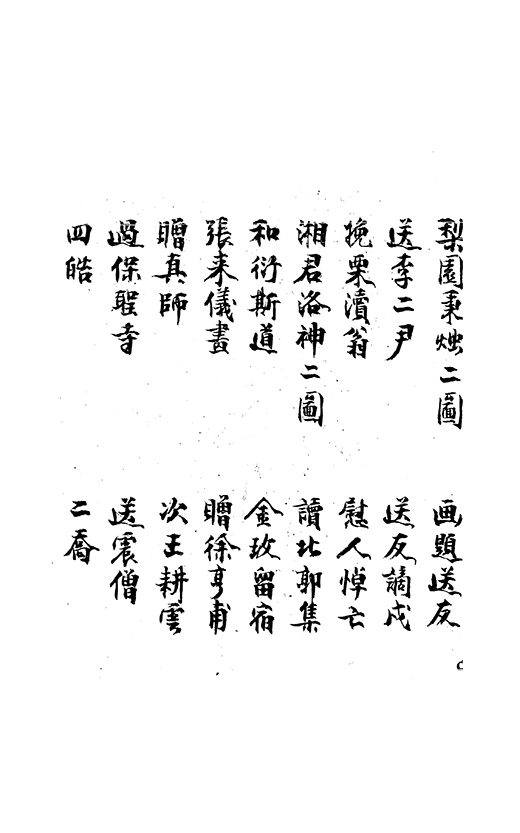 梨園秉燭二圖
画題送友
送李二尹
送友謫戍
挽栗瀆翁
慰人悼亡
湘君洛神二圖
讀北郭集
和衍斯道
金玫留宿
張来儀畫
贈徐亨甫
贈真師
次王耕雲
過保聖寺
送震僧
四皓
二喬